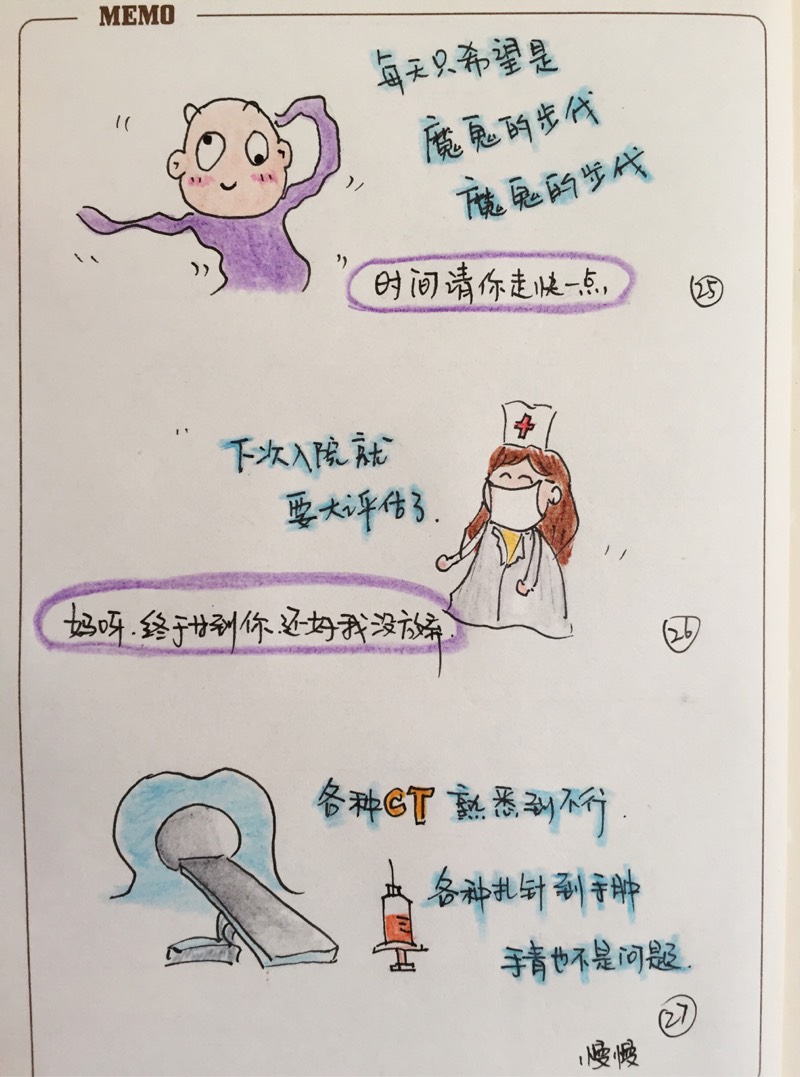 MEMO
每天只希望是
魔鬼的步伐
魔鬼的步伐
时间请你走快一点
25
下次入院就
要大评估了.
妈呀.终于甘到你.还好我没放弃.
26
各种CT 熟悉到不行.
各种扎针到手肿
手青也不是问题.
27
慢慢